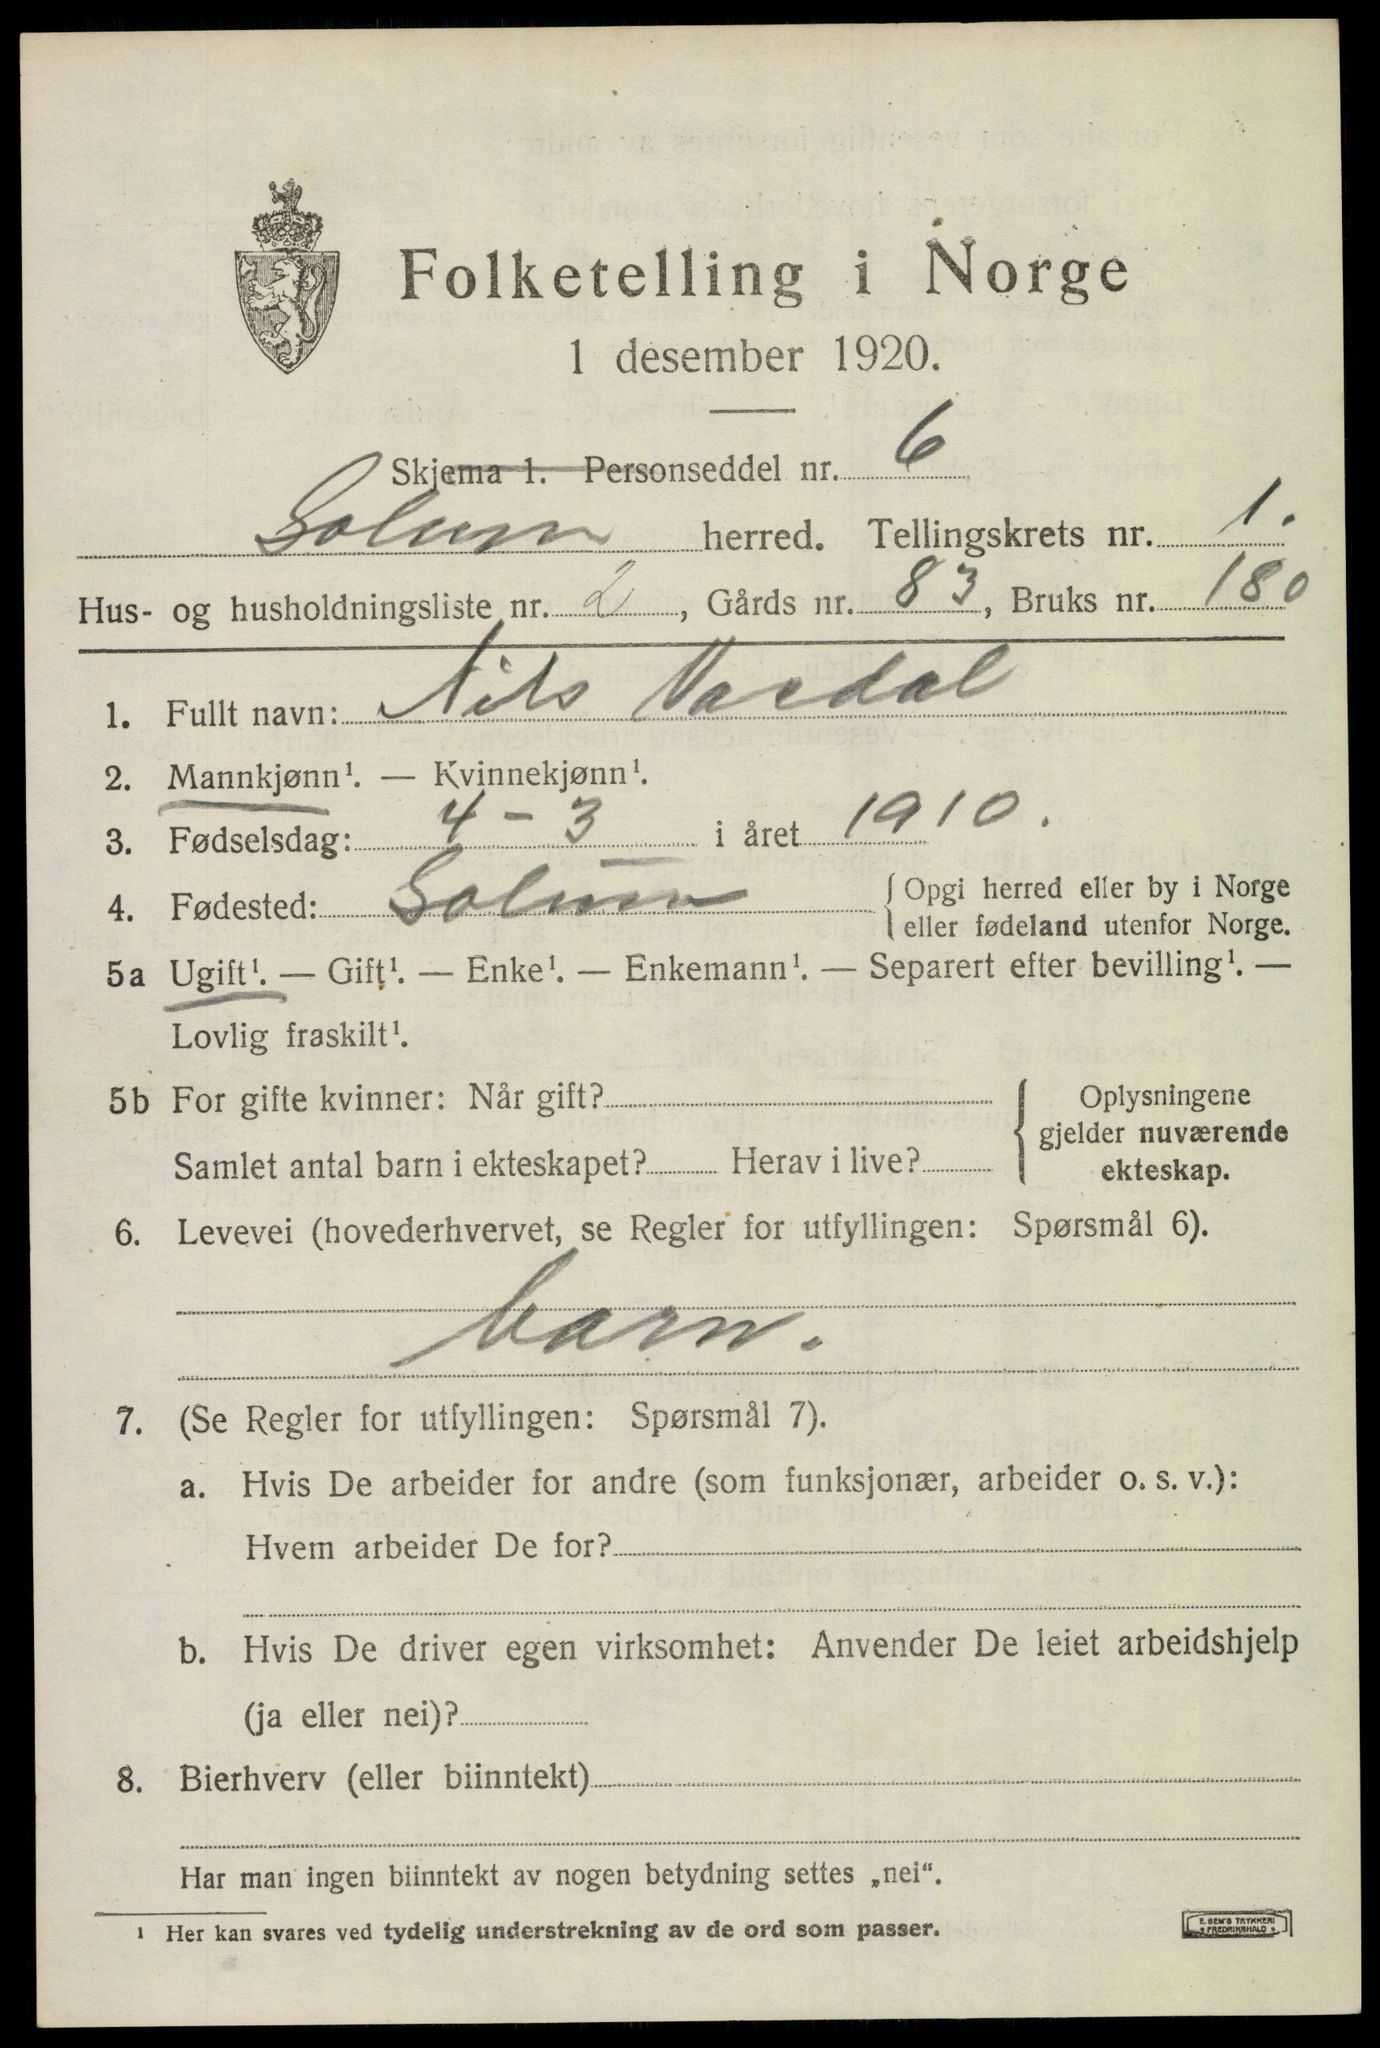 Folketelling i Norge
1 desember 1920.
Skjema 1. Personseddel nr. 6
Solum herred. Tellingskrets nr. 1.
Hus- og husholdningsliste nr. 2, Gårds nr. 83, Bruks nr. 180
1. Fullt navn: Nils Vardal
2. Mannkjønn¹. — Kvinnekjønn¹.
3. Fødselsdag: 4-3 i året 1910.
4. Fødested: Solum { Opgi herred eller by i Norge
eller fødeland utenfor Norge.
5a Ugift¹. — Gift¹. — Enke¹. — Enkemann¹. — Separert efter bevilling¹. —
Lovlig fraskilt¹.
5b For gifte kvinner: Når gift?
Samlet antal barn i ekteskapet? Herav i live?
Oplysningene
gjelder nuværende
ekteskap.
6. Levevei (hovederhvervet, se Regler for utfyllingen: Spørsmål 6).
barn.
7. (Se Regler for utfyllingen: Spørsmål 7).
a. Hvis De arbeider for andre (som funksjonær, arbeider o. s. v.):
Hvem arbeider De for?
b. Hvis De driver egen virksomhet: Anvender De leiet arbeidshjelp
(ja eller nei)?
8. Bierhverv (eller biinntekt)
Har man ingen biinntekt av nogen betydning settes „nei“.
¹ Her kan svares ved tydelig understrekning av de ord som passer.
E. SEM'S TRYKKERI
FREDRIKSHALD